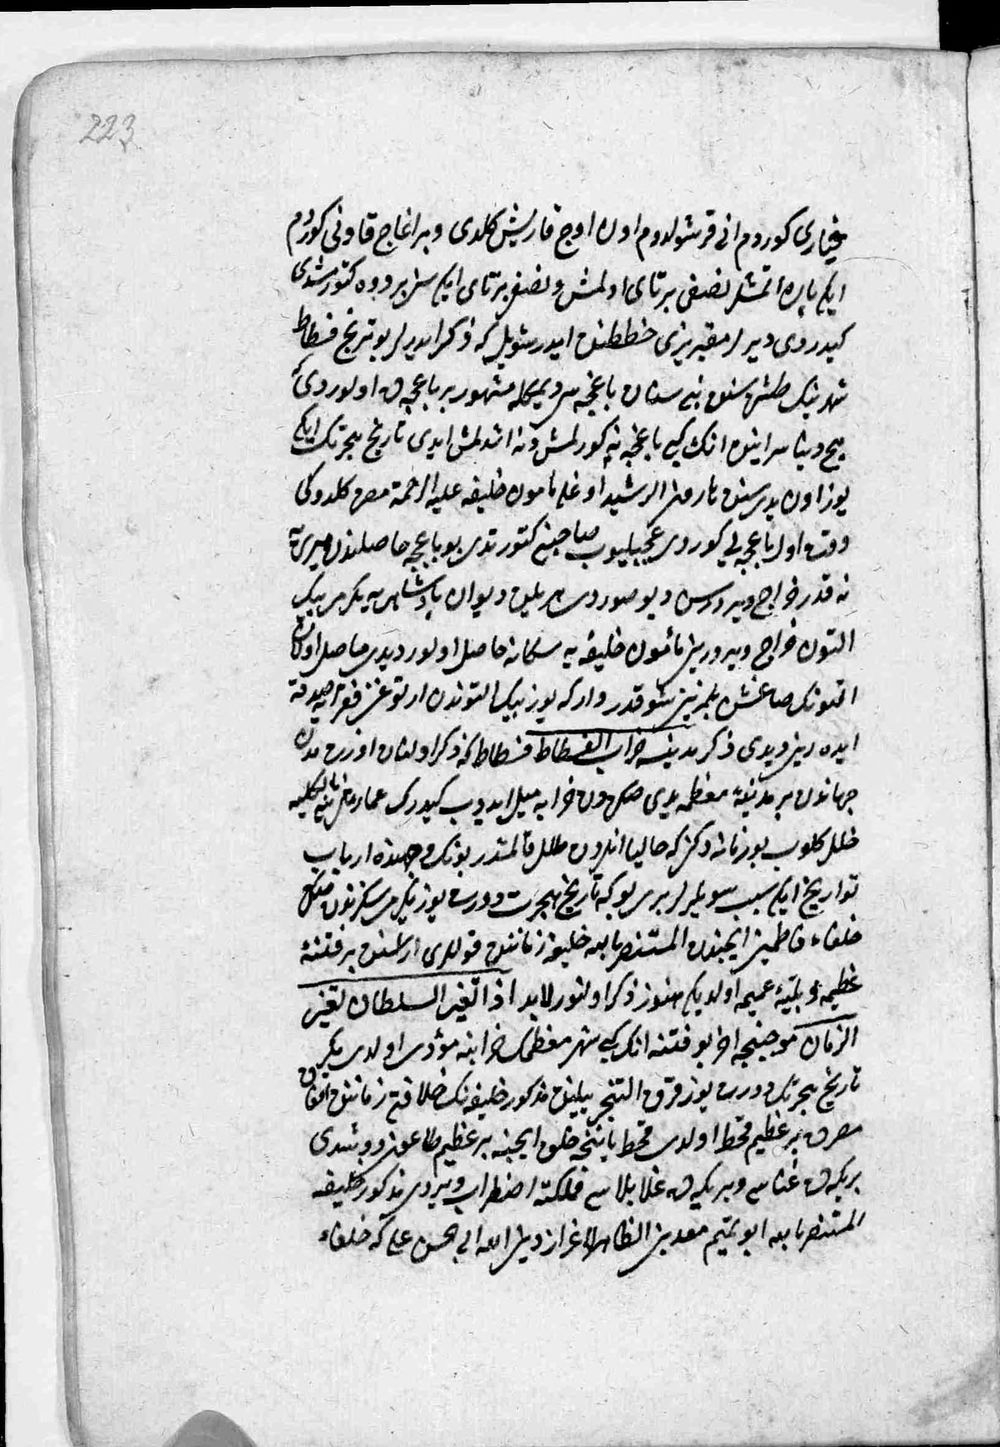 223
خیاری کوردم انی قرشولدوم اون اوچ قاریش کلدی و بر اغاج قاونی کوردم
ایکی پاره اتمشلر نصفی بر تای اولمش و نصفی بر تای ایکیسن بر دوه کتورمشدی
کیدردی دیرلر مقریزی خططنده ایدر شویله که ذکر ایدرلر بو تاریخ فسطاط
شهرینک طشره سنده بستان باغچه سی دیمکله مشهور بر باغچه اولوردی که
هیچ دنیا سراینده انک کبی باغچه نه کورلمش و نه اشدلمش ایدی تاریخ هجرتک ایکی
یوز اون یدی سنه هارون الرشید اوغلی مامون خلیفه علیه الرحمة مصره کلدوکی
وقت اول باغچه یی کوردی عجبلیوب صاحبنی کتورتدی بو باغچه حاصلندن میری یه
نه قدر خراج ویررسن دیو صوردی هر ییلده دیوان پادشاهی یه یکرمی بیک
التون خراج ویرورین مأمون خلیفه یه سکا نه حاصل اولور دیدی حاصل اولان
التونک صاغشن بلمزین شو قدر وار که یوز بیک التوندن ارتوغن فقرایه صدقة
ایده رین دیدی ذکر مدینه خراب الفسطاط فسطاط که ذکر اولنان اوزره مدن
جهاندن بر مدینۀ معظمه یدی صکره دن خرابه میل ایدوب کیدرک عمارتلرینه بالکلیه
خلل کلوب بو زمانه دکین که حالیا اندن طلل قالمشدر بونک وجهنده ارباب
تواریخ ایکی سبب سویلرلر بری بو که تاریخ هجرت دورت یوز یکرمی سکزندن صکره
خلفاء فاطمیین ایچندن المستنصر بالله خلیفه زماننده قوللری اراسنده بر فتنۀ
عظیمه و بلیۀ عمیمه اولدی که هنوز ذکر اولنور لابد اذا تغیر السلطان تغیر
الزمان موجبنجه اخر بو فتنه انک کبی شهر معظمک خرابنه مؤدی اولدی بری
تاریخ هجرتک دورت یوز قرق التنجی ییلنده مذکور خلیفه نک خلافتی زماننده اتفاق
مصرده بر عظیم قحط اولدی قحط یاننجه خلق ایچنه بر عظیم طاعون دوشدی
بر یکه دن غناسی و بر یکه دن غلا بلاسی مملکته اضطراب ویردی مذکور خلیفه
المستنصر بالله ابو تمیم معد بن الظاهر لاعزاز دین الله ابی الحسن علی که خلفاء